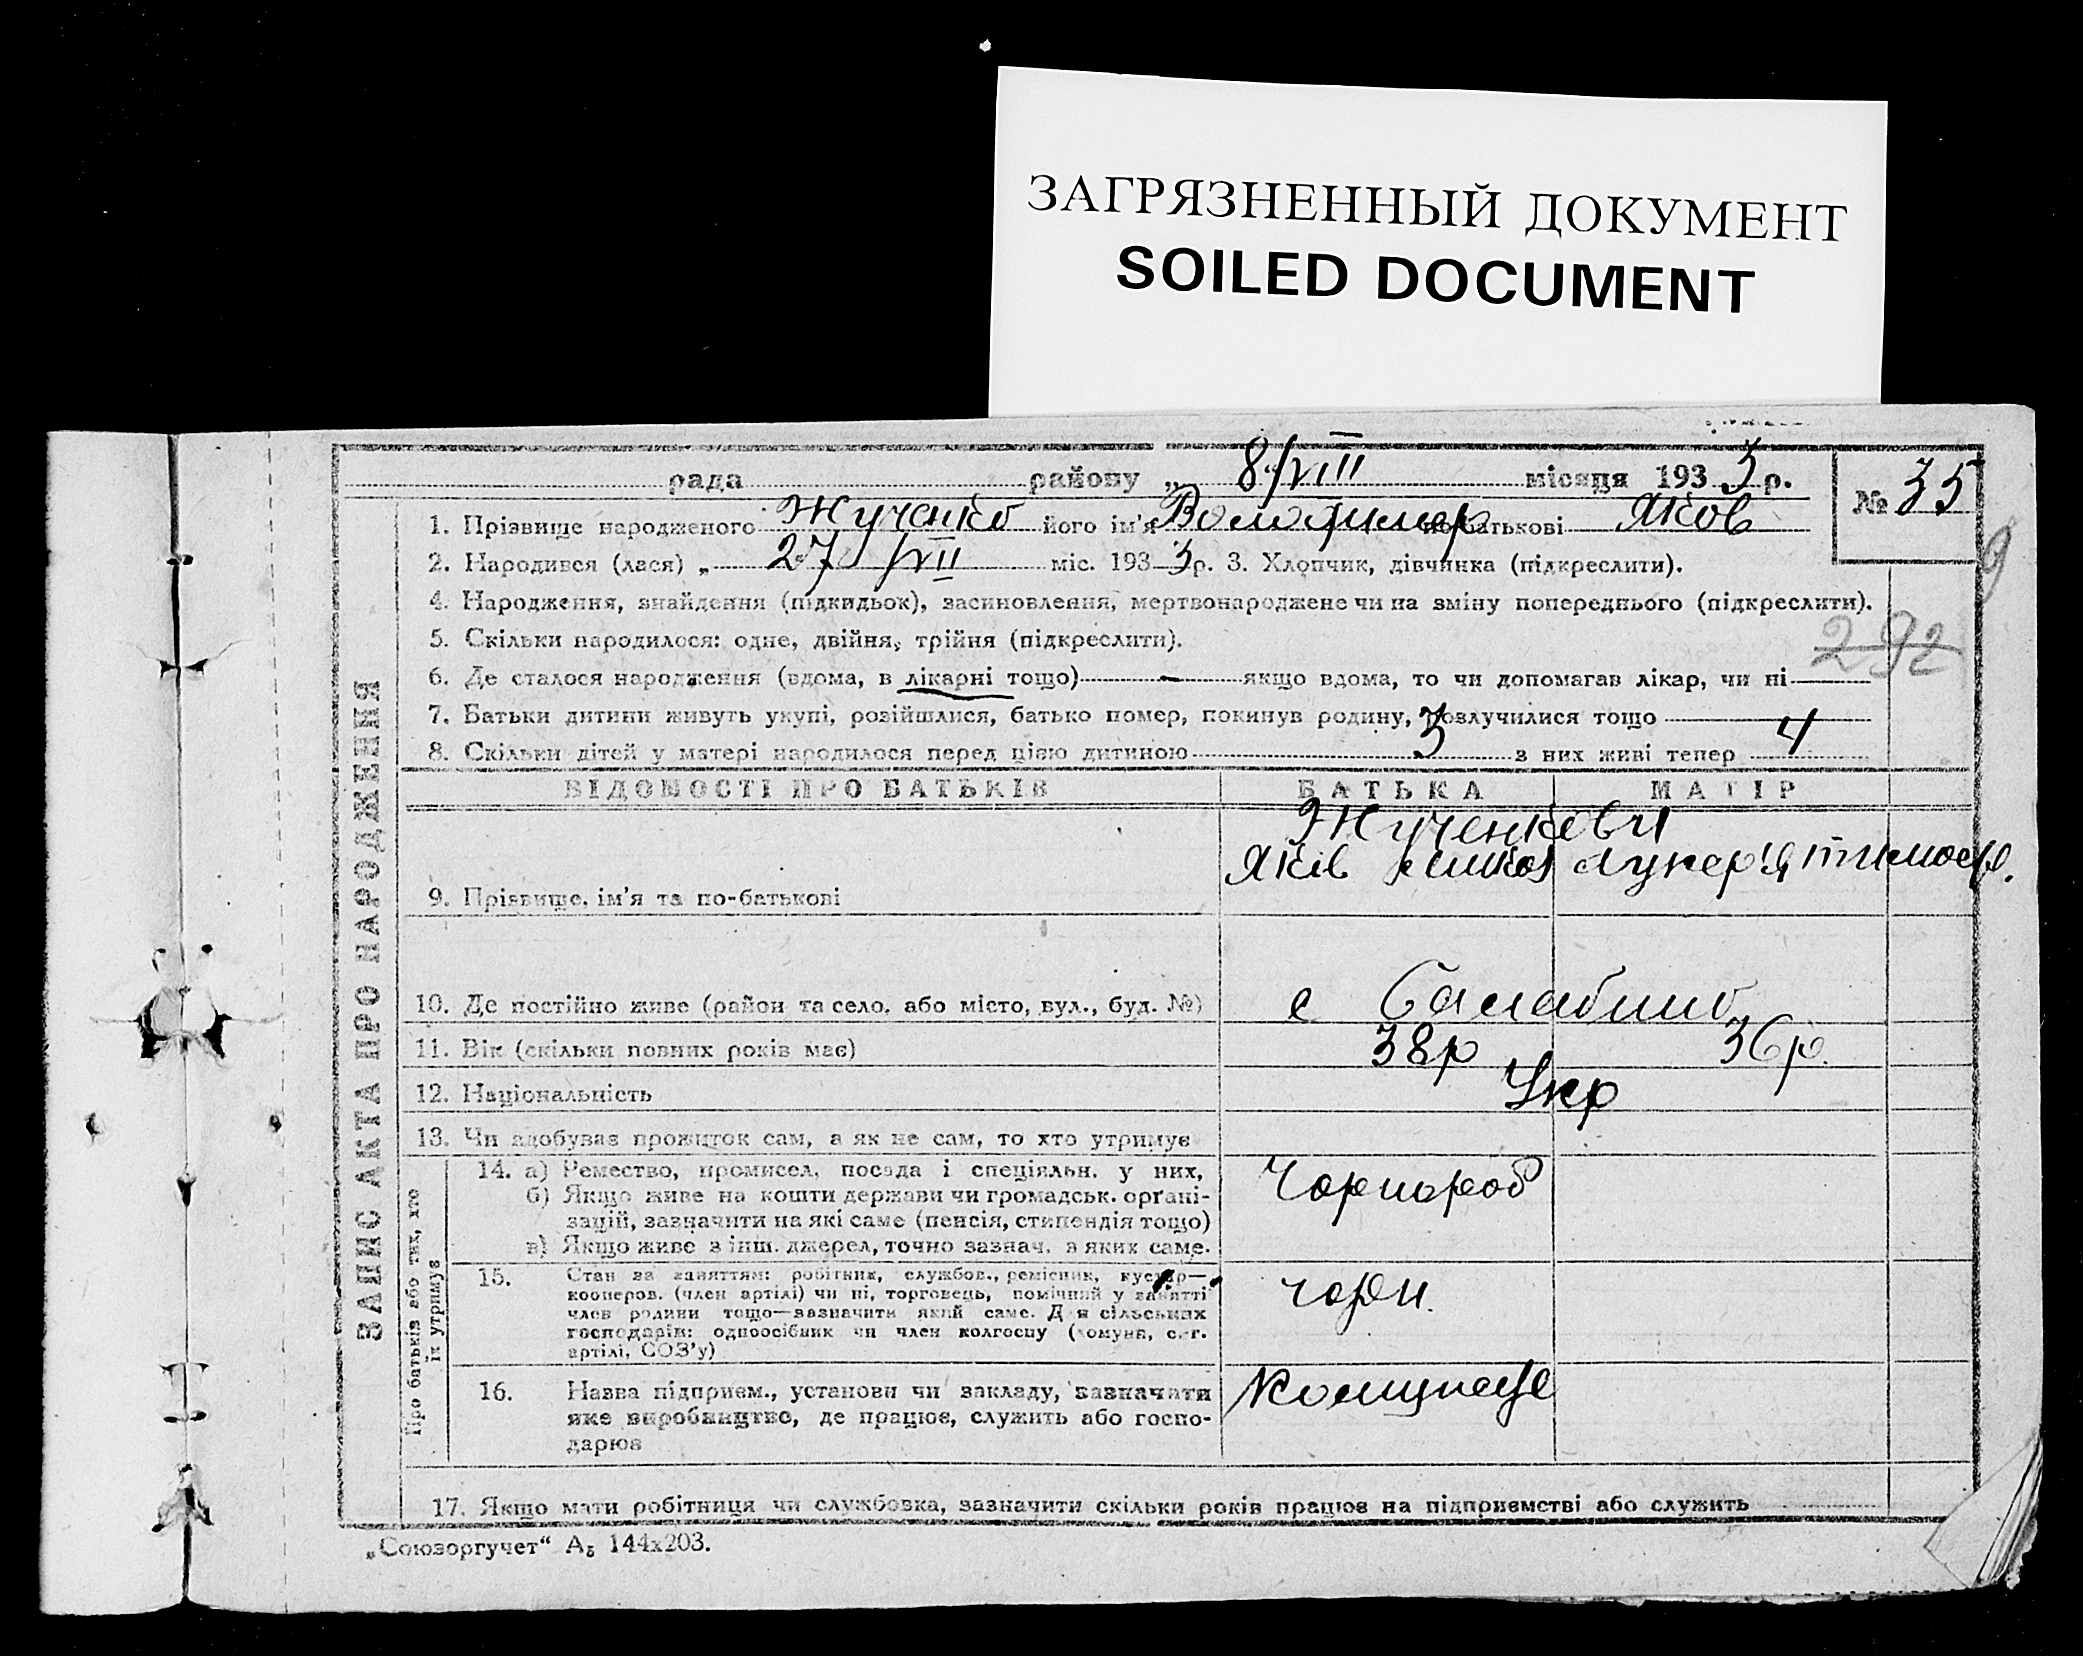 ЗАГРЯЗНЕННЫЙ ДОКУМЕНТ
SOILED DOCUMENT
рада району „ 8/VIII місяця 1933 р.
№ 35
1. Прізвище народженого Жученко його ім'я Володимир по батькові Яков
2. Народився (лася) „ 27 /VII міс. 1933 р. 3. Хлопчик, дівчинка (підкреслити).
9
4. Народження, знайдення (підкидьок), засиновлення, мертвонароджене чи на зміну попереднього (підкреслити).
5. Скільки народилося: одне, двійня, трійня (підкреслити).
292
6. Де сталося народження (вдома, в лікарні тощо) — якщо вдома, то чи допомагав лікар, чи ні
7. Батьки дитини живуть укупі, розійшлися, батько помер, покинув родину, розлучилися тощо
8. Скільки дітей у матері народилося перед цією дитиною 3 з них живі тепер 4
ЗАПИС АКТА ПРО НАРОДЖЕННЯ
ВІДОМОСТІ ПРО БАТЬКІВ БАТЬКА МАТІР
Жученкови
Яків Лукер'я тимоф.
9. Прізвище, ім'я та по-батькові
10. Де постійно живе (район та село, або місто, вул., буд. №) с
11. Вік (скільки повних років має) 38р 36р.
12. Національність Укр
13. Чи здобуває прожиток сам, а як не сам, то хто утримує
Про батьків або тих, хто
їх утримує
14. а) Ремество, промисел, посада і спеціяльн. у них,
б) Якщо живе на кошти держави чи громадськ. орґані-
зацій, зазначити на які саме (пенсія, стипендія тощо)
в) Якщо живе з інш. джерел, точно зазнач. з яких саме.
Чорнороб
15. Стан за заняттям: робітник, службов., ремісник, кустар—
кооперов. (член артілі) чи ні, торговець, помічний у занятті
член родини тощо—зазначити який саме. Для сільських
господарів: одноосібник чи член колгоспу (комуна, с.-г.
артілі, СОЗ'у)
чорн.
16. Назва підприєм., установи чи закладу, зазначати
яке виробництво, де працює, служить або госпо-
дарює
17. Якщо мати робітниця чи службовка, зазначити скільки років працює на підприємстві або служить
„Союзоргучет“ А₅ 144х203.